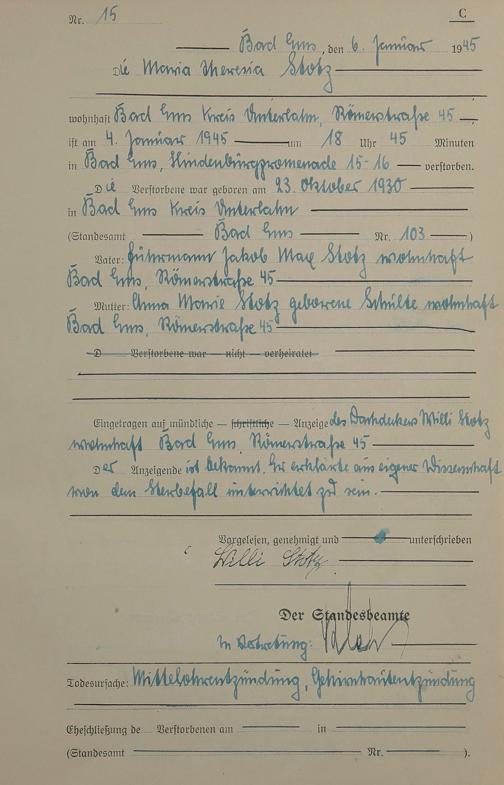 Nr. 15
C
Bad Ems, den 6. Januar 1945
Die Maria Theresia Stotz
wohnhaft Bad Ems Kreis Unterlahn, Römerstraße 45
ist am 4. Januar 1945 um 18 Uhr 45 Minuten
in Bad Ems, Hindenburgpromenade 15-16 verstorben.
Die Verstorbene war geboren am 23. Oktober 1930
in Bad Ems Kreis Unterlahn
(Standesamt Bad Ems Nr. 103)
Vater: Fuhrmann Jakob Max Stotz wohnhaft
Bad Ems, Römerstraße 45
Mutter: Anna Marie Stotz geborene Schulte wohnhaft
Bad Ems, Römerstraße 45
D Verstorbene war — nicht — verheiratet
Eingetragen auf mündliche — schriftliche — Anzeige des Dachdeckers Willi Stotz
wohnhaft Bad Ems, Römerstraße 45
Der Anzeigende ist bekannt. Er erklärte aus eigener Wissenschaft
von dem Sterbefall unterrichtet zu sein.
Vorgelesen, genehmigt und unterschrieben
Willi Stotz
Der Standesbeamte
In Vertretung:
Todesursache: Mittelohrentzündung, Gehirnhautentzündung
Eheschließung de Verstorbenen am in
(Standesamt Nr. ).